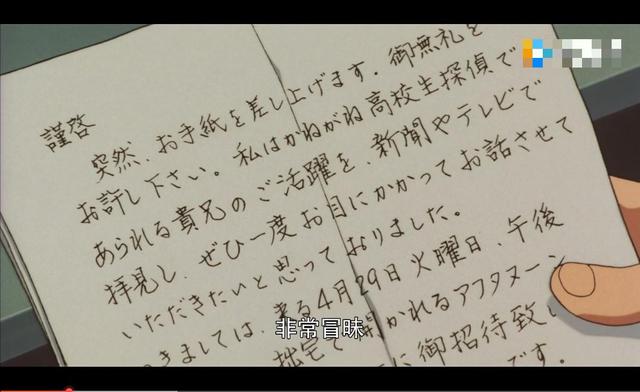 謹啓
突然、お手紙を差し上げます。御無礼を
お許し下さい。私はかねがね高校生探偵で
あられる貴兄のご活躍を、新聞やテレビで
拝見し、ぜひ一度お目にかかってお話させて
いただきたいと思っておりました。
きましては、来る4月29日火曜日、午後
拙宅で開かれるアフタヌーン
に御招待致し
です。
非常冒昧